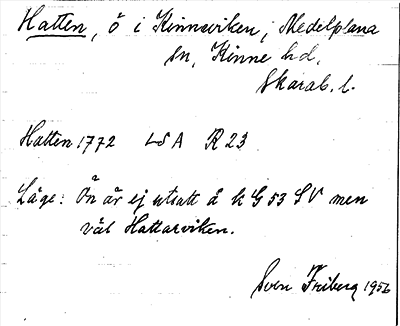 Hatten, ö i Kinneviken, Medelplana
sn, Kinne hd,
Skarab. l.
Hatten 1772 LSA R 23
Läge: Ön är ej utsatt å k G 53 SV men
väl Hattarviken.
Sven Friberg 1956